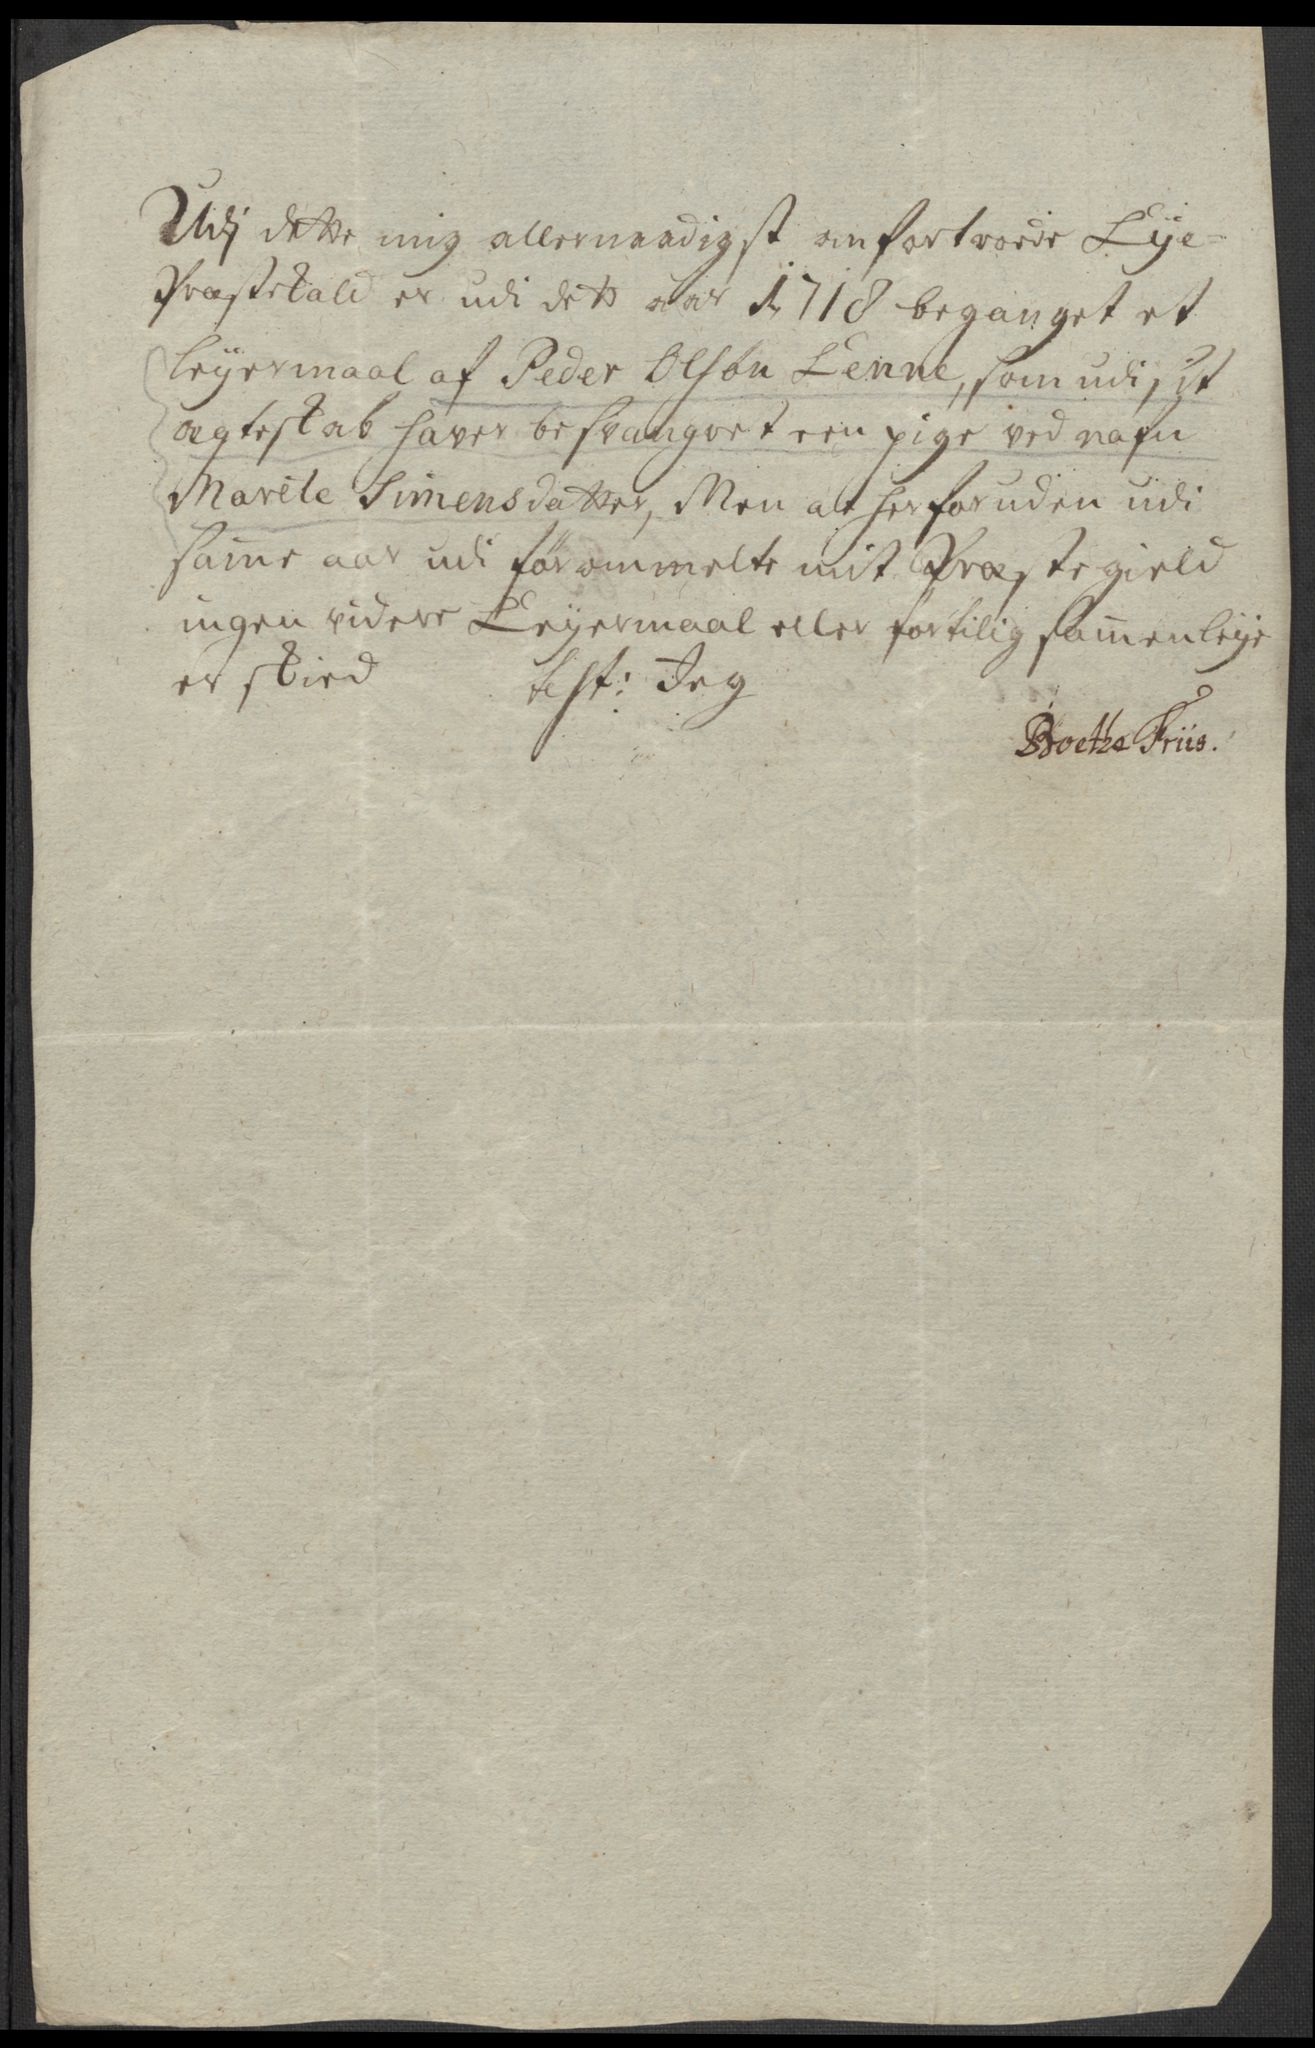 Udj dette mig allernaadigst anfortroede Lÿe-
Præstekald er udi dett aar 1718 beganget et
Leÿermaal af Peder Olsøn Lenne, som udi sit
ægteskab haver besvangret een pige ved nafn
Marite Simensdatter, Men at herforuden udi
same aar udi forommelte mit Præstegield
ingen videre Leÿermaal eller fortilig samenleÿe
er skied test: Jeg
Friis.